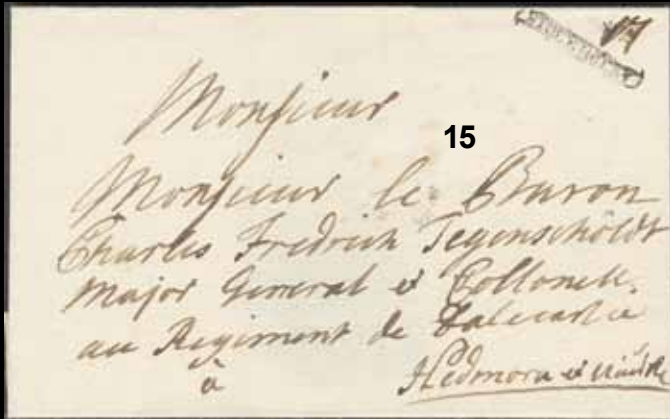 17
Monsieur
15
Monsieur le Baron
Charles Fredrich Tegenschöldt
Major General et Collonell.
au Regiment de Dalecarlie
à
Hedmora et